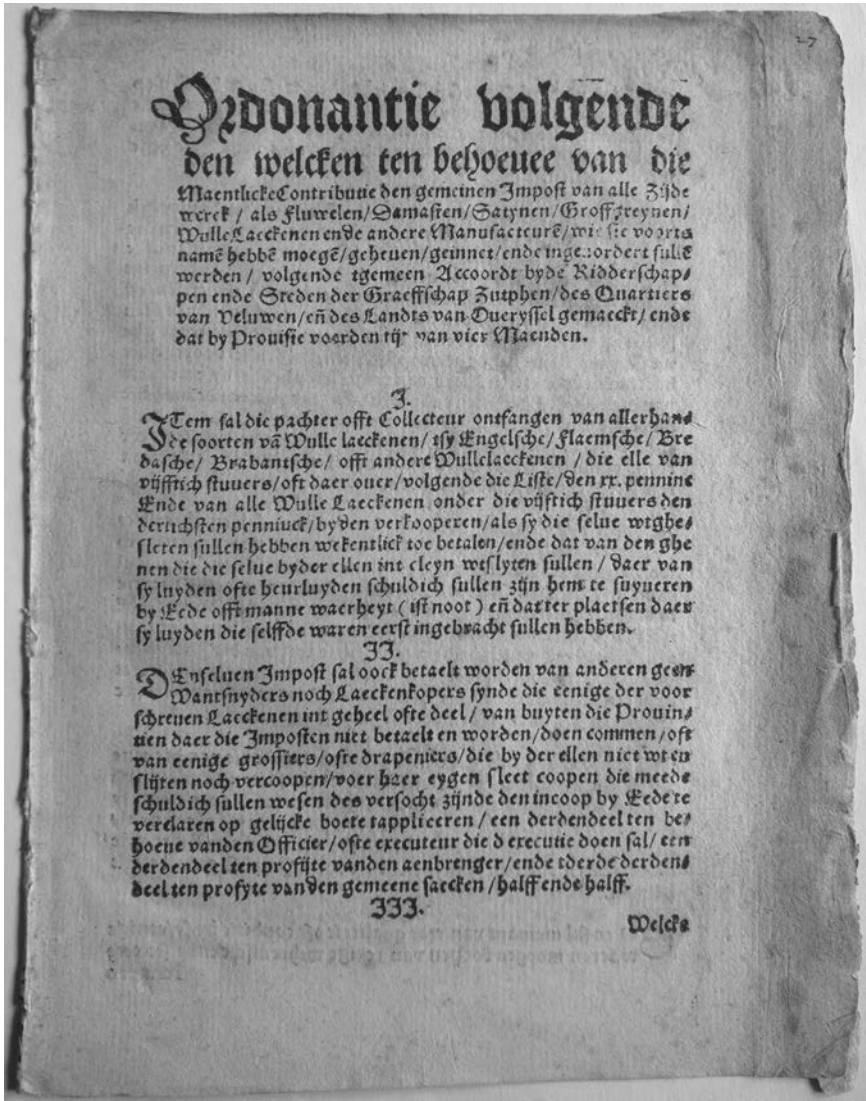 27
Ordonantie volgende
den welcken ten behoeuee van die
Maentlicke Contributie den gemeinen Impost van alle Zijde
werck / als Fluwelen/Damasten/Satynen/Groffgreynen/
Wulle Laeckenen ende andere Manufacteurē/wie sie voorts
namē hebbē moegē/geheuen/geinnet/ende ingevordert sullē
werden / volgende tgemeen Accoordt byde Ridderschap⸗
pen ende Steden der Graeffschap Zutphen/des Quartiers
van Veluwen/eñ des Landts van Oueryssel gemaeckt/ende
dat by Prouisie voorden tijt van vier Maenden.
I.
ITem sal die pachter offt Collecteur ontfangen van allerhan⸗
de soorten vā Wulle laeckenen/ tsy Engelsche/Flaemsche/Bre
dasche/ Brabantsche/ offt andere Wullelaeckenen / die elle van
vijfftich stuuers/oft daer ouer/volgende die Liste/den xx. penninc
Ende van alle Wulle Laeckenen onder die vijftich stuuers den
dertichsten penninck/by den verkooperen/als sy die selue wtghe⸗
sleten sullen hebben wekentlick toe betalen/ende dat van den ghe
nen die die selue byder ellen int cleyn wtslyten sullen / daer van
sy luyden ofte heurluyden schuldich sullen zijn hem te suyueren
by Eede offt manne waerheyt ( ist noot ) eñ dat ter plaetsen daer
sy luyden die selffde waren eerst ingebracht sullen hebben.
II.
DEnseluen Impost sal oock betaelt worden van anderen geen
Wantsnyders noch Laeckenkopers synde die eenige der voor
schreuen Laeckenen int geheel ofte deel / van buyten die Prouin⸗
tien daer die Imposten niet betaelt en worden/doen commen/oft
van eenige grossiers/ofte drapeniers/die by der ellen niet wt en
slijten noch vercoopen/voer haer eygen sleet coopen die meede
schuldich sullen wesen des versocht zijnde den incoop by Eede te
verclaren op gelijcke boete tappliceeren / een derdendeel ten be⸗
hoeue vanden Officier/ofte executeur die d executie doen sal/ een
derdendeel ten profijte vanden aenbrenger/ende tderde derden⸗
deel ten profyte van den gemeene saecken /halff ende halff.
III.
Welcke